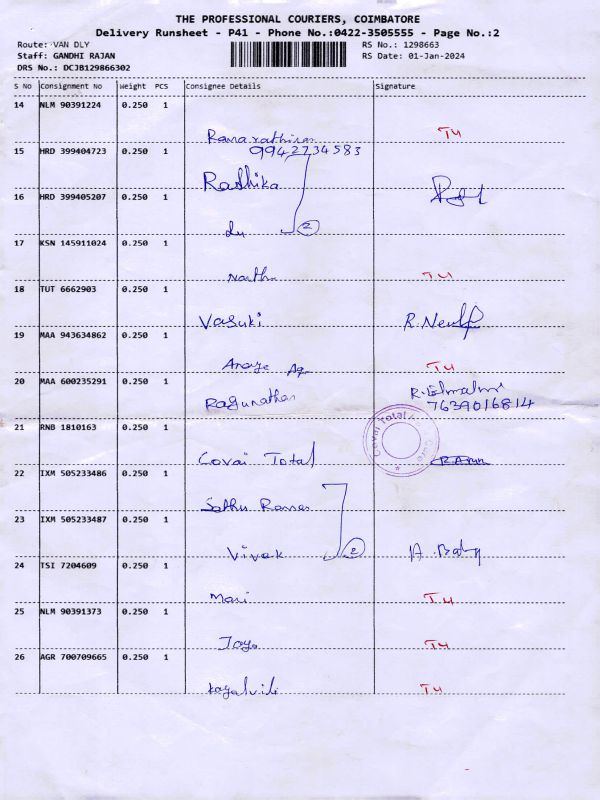 THE PROFESSIONAL COURIERS, COIMBATORE
Delivery Runsheet - P41 - Phone No.:0422-3505555 - Page No.:2
Route: VAN DLY RS No.: 1298663
Staff: GANDHI RAJAN RS Date: 01-Jan-2024
DRS No.: DCJB129866302
S No Consignment No Weight PCS Consignee Details Signature
14 NLM 90391224 0.250 1
T4
9942734583
15 HRD 399404723 0.250 1
Radhika
16 HRD 399405207 0.250 1
2
17 KSN 145911024 0.250 1
T4
18 TUT 6662903 0.250 1
Vasuki
19 MAA 943634862 0.250 1
T4
20 MAA 600235291 0.250 1
Ragunathan
7639016814
21 RNB 1810163 0.250 1
Covai Total
Covai Total
22 IXM 505233486 0.250 1
23 IXM 505233487 0.250 1
Vivek 2
24 TSI 7204609 0.250 1
Mari T4
25 NLM 90391373 0.250 1
T4
26 AGR 700709665 0.250 1
T4